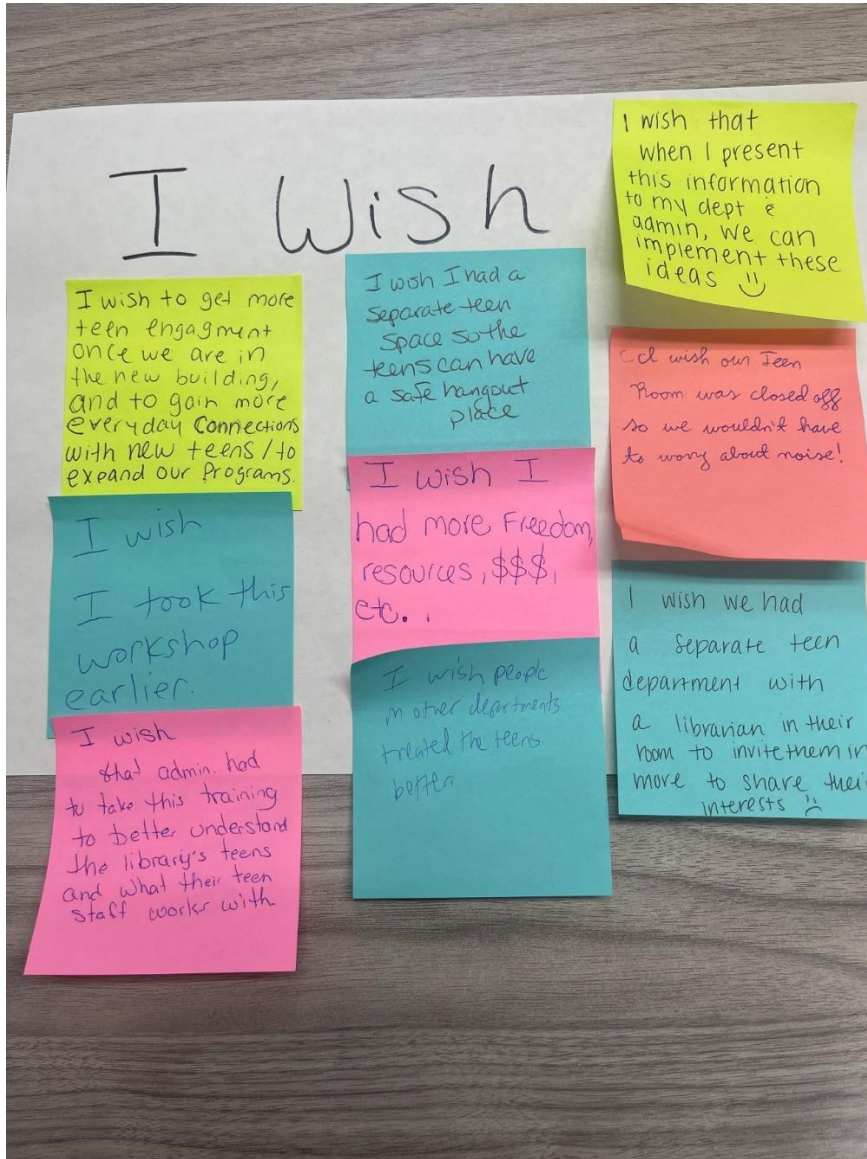 I Wish
I wish to get more
teen engagment
once we are in
the new building,
and to gain more
everyday Connections
with new teens/to
expand our Programs.
I wish
I took this
workshop
earlier.
I wish
that admin. had
to take this training
to better understand
the library's teens
and what their teen
staff works with
I wish I had a
separate teen
space so the
teens can have
a safe hangout
place
I wish I
had more Freedom,
resources, $$$,
etc..
I wish people
in other departments
treated the teens
better
I wish that
when I present
this information
to my dept &
admin, we can
implement these
ideas :)
I wish our Teen
Room was closed off
so we wouldn't have
to worry about noise!
I wish we had
a separate teen
department with
a librarian in their
room to invite them in
more to share their
interests :)